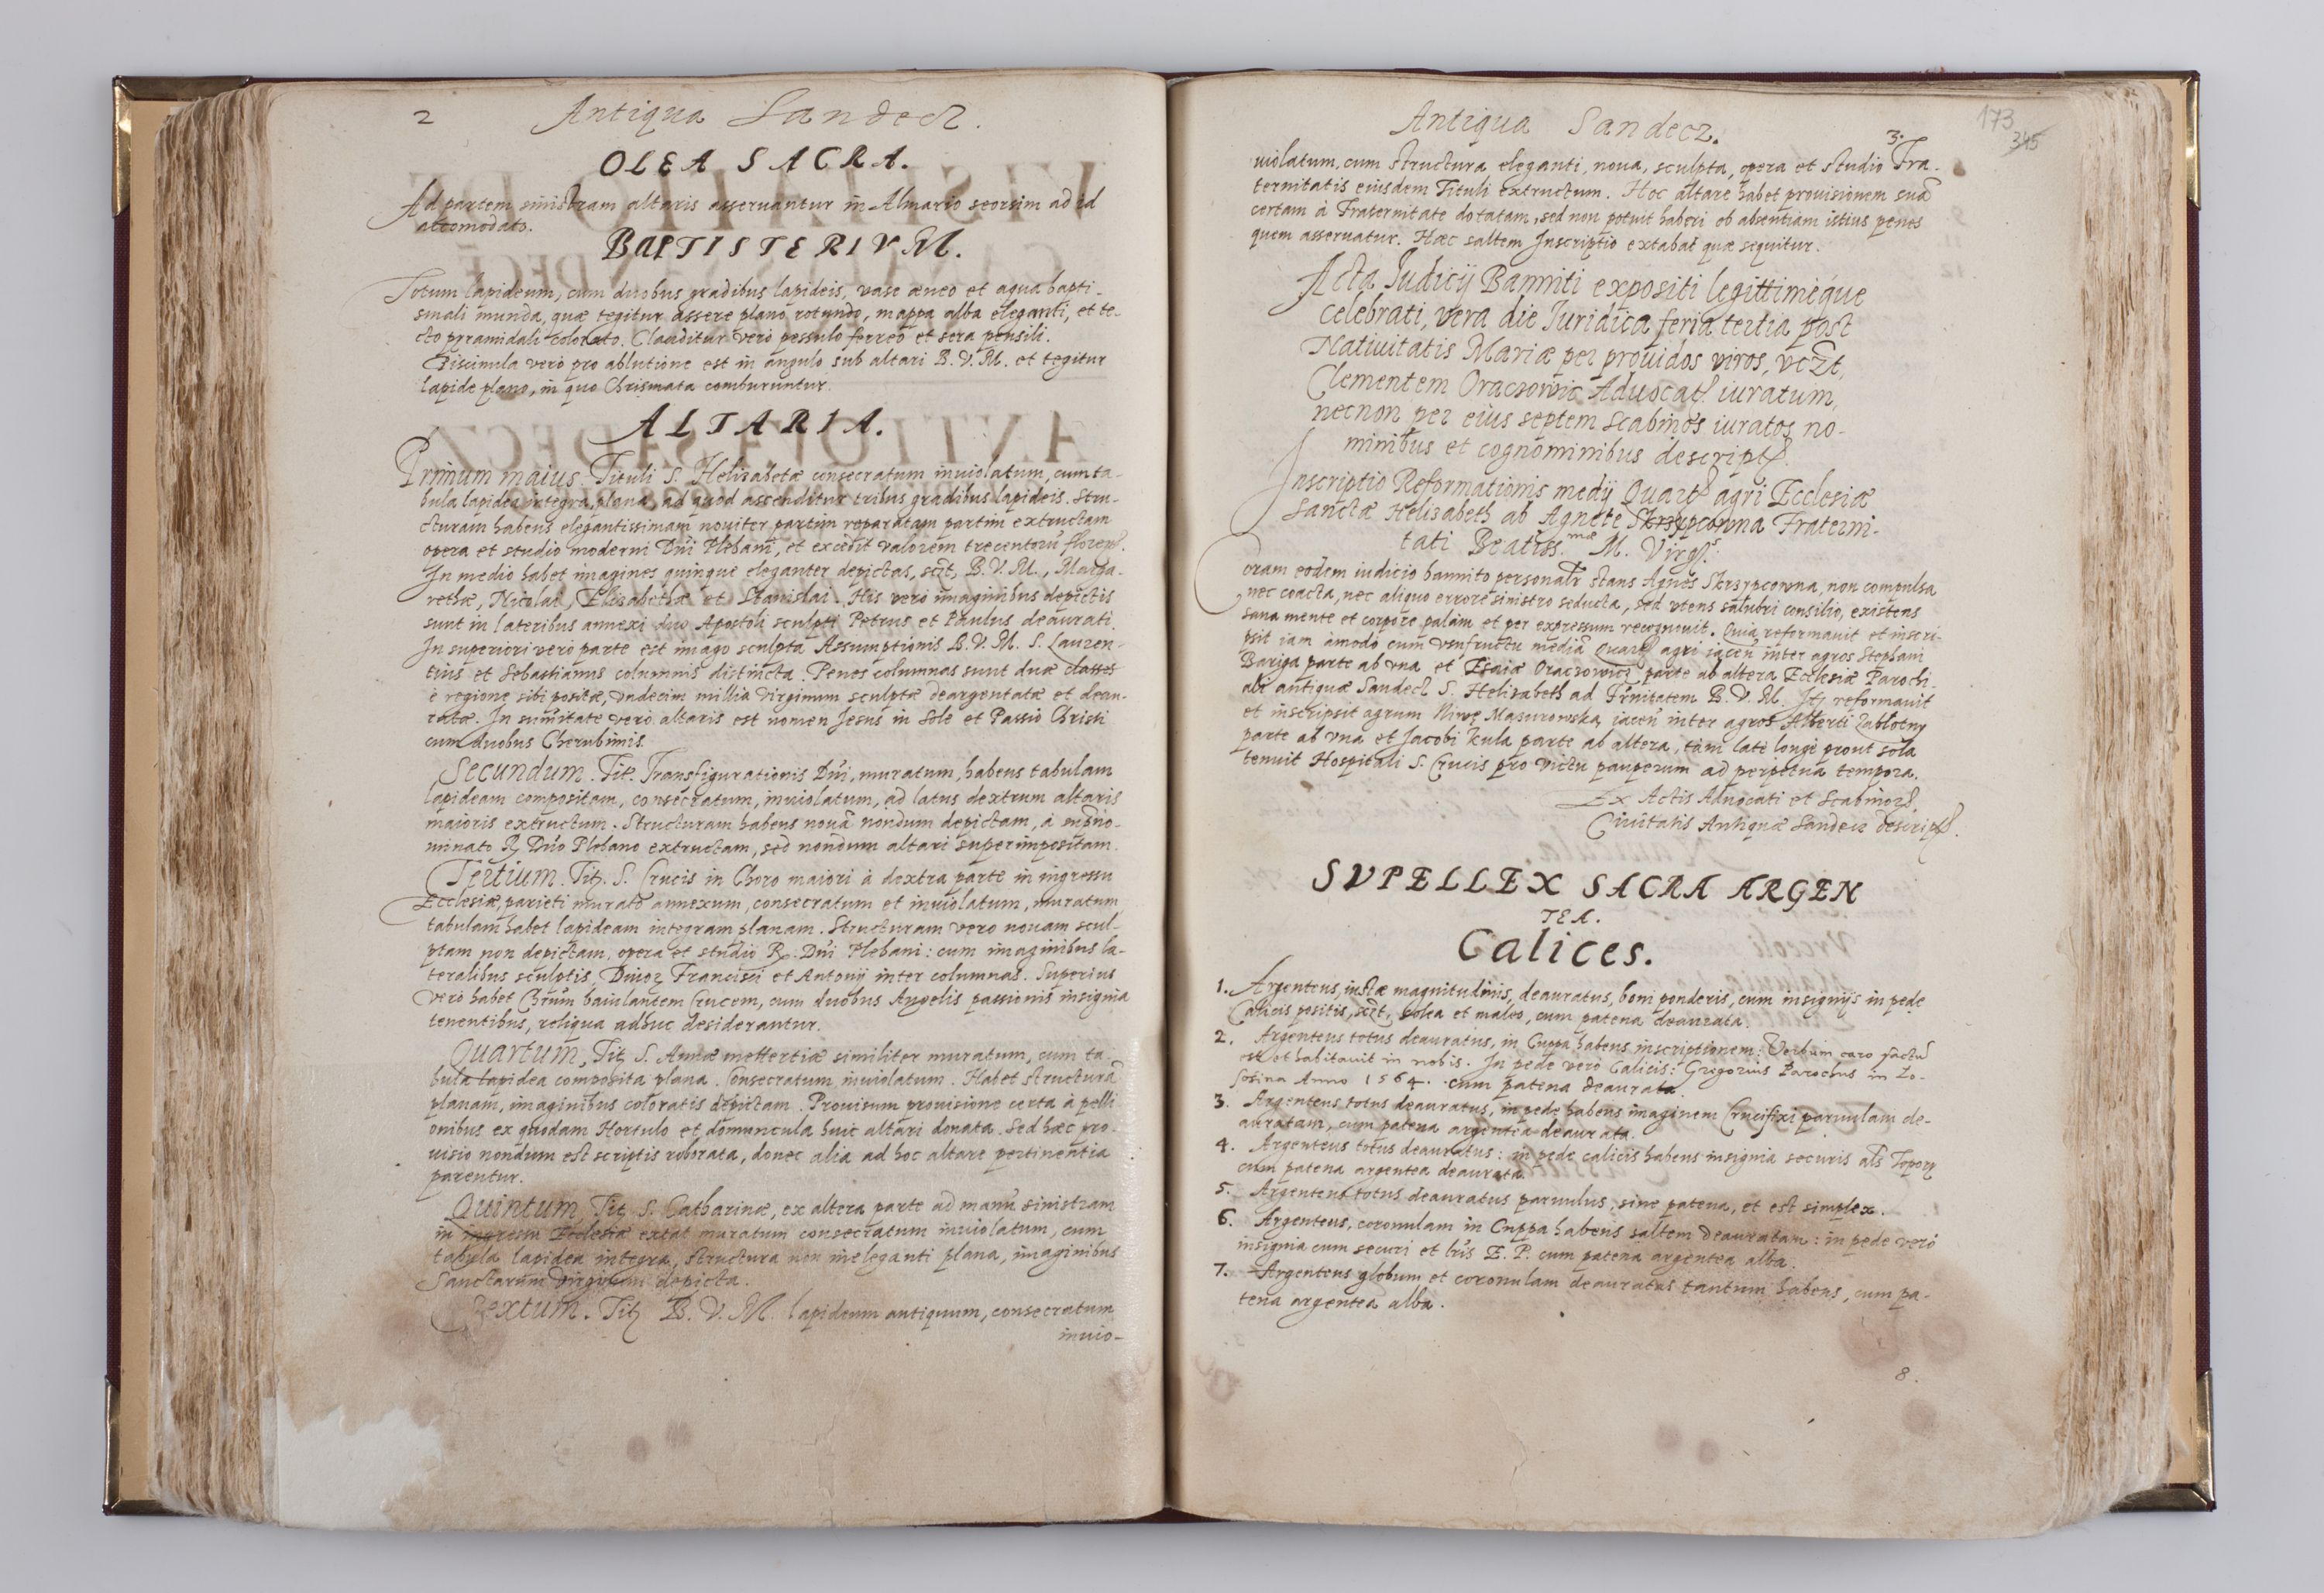 2 Antiqua Sandecz.
OLEA SACRA.
Ad partem sinistram altaris asseruantur in Almario seorsim ad id
accomodato.
BAPTISTERIVM.
Totum lapideum, cum duobus gradibus lapideis, vase æneo et aqua bapti-
smali munda, quæ tegitur assere plano rotundo, mappa alba eleganti, et te-
cto pyramidali colorato. Clauditur vero pessulo ferreo et sera pensili.
Piscinula vero pro ablutione est in angulo sub altari B. V. M. et tegitur
lapide plano, in quo Chrismata comburuntur.
ALTARIA.
Primum maius. Tituli S. Helisabetæ consecratum inuiolatum, cum ta-
bula lapidea integra, plana, ad quod ascenditur tribus gradibus lapideis. Stru-
cturam habens elegantissimam nouiter partim reparatam partim extructam
opera et studio moderni Dni Plebani, et excedit valorem trecentorũ floren.
In medio habet imagines quinque eleganter depictas, sczt, B. V. M., Marga-
rethæ, Nicolai, Elisabethæ et Stanislai. His vero imaginibus depictis
sunt in lateribus annexi duo Apostoli sculpti Petrus et Paulus deaurati.
In superiori vero parte est imago sculpta Assumptionis B. V. M. S. Lauren-
tius et Sebastianus columnis distincta. Penes columnas sunt duæ classes
è regione sibi positæ, vndecim millia Virginum sculptæ deargentatæ et deau-
ratæ. In sumitate vero altaris est nomen Jesus in Sole et Passio Christi
cum duobus Cherubinis.
Secundum. Tit. Transfigurationis Dni, muratum, habens tabulam
lapideam compositam, consecratum, inuiolatum, ad latus dextrum altaris
maioris extructum. Structuram habens nouã nondum depictam, à supno-
minato R Dno Plebano extructam, sed nondum altari superimpositam.
Tertium. Tit. S. Crucis in Choro maiori à dextra parte in ingressu
Ecclesiæ, parieti murato annexum, consecratum et inuiolatum, muratum
tabulam habet lapideam integram planam. Structuram vero nouam scul-
ptam non depictam, opera et studio R. Dni Plebani: cum imaginibus la-
teralibus sculptis, Diuor Francisci et Antonij inter columnas. Superius
vero habet Chrum baiulantem Crucem, cum duobus Angelis passionis insignia
tenentibus, reliqua adhuc desiderantur.
Quartum, Tit S. Annæ mettertiæ similiter muratum, cum ta-
bula lapidea composita plana. Consecratum inuiolatum. Habet structurã
planam, imaginibus coloratis depictam. Prouisum prouisione certa à pelli
onibus ex quodam Hortulo et domuncula huic altari donata. Sed hæc pro-
uisio nondum est scriptis roborata, donec alia ad hoc altare pertinentia
parentur.
Quintum, Tit S. Catharinæ, ex altera parte ad manũ sinistram
in ingressu Ecclesiæ extat muratum consecratum inuiolatum, cum
tabula lapidea integra, structura non ineleganti plana, imaginibus
Sanctarum Virginum depicta.
Sextum. Tit B. V. M. lapideum antiquum, consecratum
inuio-
Antiqua Sandecz. 3.
173
345
uiolatum, cum structura eleganti, noua, sculpta, opera et studio Fra-
ternitatis eiusdem Tituli extructum. Hoc altare habet prouisionem suã
certam à Fraternitate dotatam, sed non potuit haberi ob absentiam istius penes
quem asseruatur. Hæc saltem Inscriptio extabat quæ sequitur.
Acta Iudicij Banniti expositi legittimeque
celebrati, vera die Iuridica feria tertia post
Natiuitatis Mariæ per prouidos viros, vczt,
Clementem Oraczowic Aduocat iuratum,
necnon per eius septem Scabinos iuratos no-
minibus et cognominibus descript.
Inscriptio Reformationis medij Quart agri Ecclesiæ
Sanctæ Helisabeth ab Agnete Skrzypcowna Fraterni-
tati Beatiss.mæ M. Virgs.
Coram eodem iudicio bannito personalr stans Agnes Skrzypcowna, non compulsa
nec coacta, nec aliquo errore sinistro seducta, sed vtens salubri consilio, existens
sana mente et corpore palam et per expressum recognouit. Quia reformauit et inscri-
psit iam àmodo cum vsufructu mediã quart agri iacen inter agros Stephani
Bariga parte ab vna et Esaiæ Oraczowicz parte ab altera Ecclesiæ Parochi-
ali antiquæ Sandecz S. Helisabeth ad Frnitatem B. V. M. It reformauit
et inscripsit agrum Niwę Mazurowska iacen inter agros Alberti Zablotny
parte ab vna et Jacobi Kula parte ab altera, tàm latè longè prout sola
tenuit Hospitali S. Crucis pro victu pauperum ad perpetua tempora.
Ex Actis Aduocati et Scabinor
Ciuitatis Antiquæ Sandecz descript.
SVPELLEX SACRA ARGEN
TEA.
Calices.
1. Argenteus, iustæ magnitudinis, deauratus, boni ponderis, cum insignijs in pede
Calicis positis, sczt, solea et maleo, cum patena deaurata.
2. Argenteus totus deauratus, in Cuppa habens inscriptionem: Verbum caro factũ
est et habitauit in nobis. In pede vero Calicis: Gregorius Parochus in Lo-
sosina Anno 1564. cum patena deaurata.
3. Argenteus totus deauratus, in pede habens imaginem Crucifixi paruulam de-
auratam, cum patena argentea deaurata.
4. Argenteus totus deauratus: in pede calicis habens insignia securis als Topory
cum patena argentea deaurata.
5. Argenteus totus deauratus paruulus, sine patena, et est simplex.
6. Argenteus, coronulam in Cuppa habens saltem deauratam: in pede vero
insignia cum securi et lris E. P. cum patena argentea alba.
7. Argenteus globum et coronulam deauratas tantum habens, cum pa-
tena argentea alba.
8.